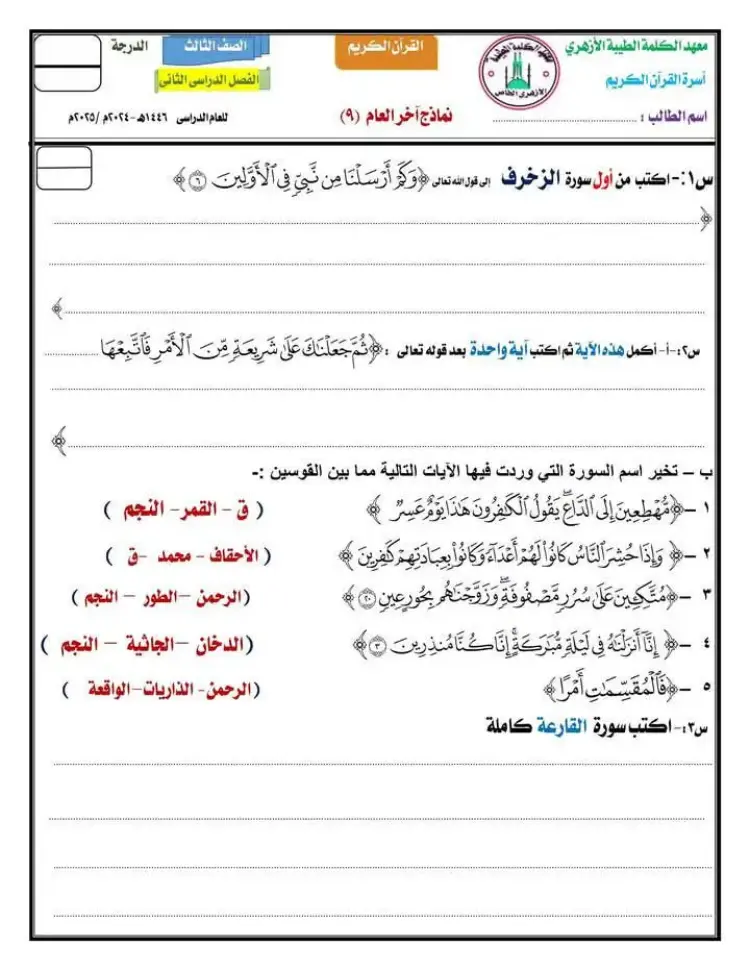 معهد الكلمة الطيبة الأزهري
القرآن الكريم
الصف الثالث
الدرجة
أسرة القرآن الكريم
الفصل الدراسى الثانى
اسم الطالب : ................................
نماذج آخر العام (٩)
للعام الدراسى ١٤٤٦هـ-٢٠٢٤م /٢٠٢٥م
س١:-اكتب من أول سورة الزخرف إلى قول الله تعالى ﴿وَكَمْ أَرْسَلْنَا مِن نَّبِيٍّ فِي الْأَوَّلِينَ ٦﴾
﴿
﴾
س٢:-أ- أكمل هذه الآية ثم اكتب آية واحدة بعد قوله تعالى :﴿ثُمَّ جَعَلْنَاكَ عَلَىٰ شَرِيعَةٍ مِّنَ الْأَمْرِ فَاتَّبِعْهَا ................
﴾
ب – تخير اسم السورة التي وردت فيها الآيات التالية مما بين القوسين :-
١ –﴿مُّهْطِعِينَ إِلَى الدَّاعِ ۖ يَقُولُ الْكَافِرُونَ هَٰذَا يَوْمٌ عَسِرٌ ﴾ ( ق - القمر- النجم )
٢ –﴿ وَإِذَا حُشِرَ النَّاسُ كَانُوا لَهُمْ أَعْدَاءً وَكَانُوا بِعِبَادَتِهِمْ كَافِرِينَ ﴾ ( الأحقاف - محمد -ق )
٣ –﴿مُتَّكِئِينَ عَلَىٰ سُرُرٍ مَّصْفُوفَةٍ ۖ وَزَوَّجْنَاهُم بِحُورٍ عِينٍ ٢٠﴾ (الرحمن –الطور – النجم )
٤ –﴿ إِنَّا أَنزَلْنَاهُ فِي لَيْلَةٍ مُّبَارَكَةٍ ۚ إِنَّا كُنَّا مُنذِرِينَ ٣﴾ (الدخان –الجاثية – النجم )
٥ –﴿فَالْمُقَسِّمَاتِ أَمْرًا﴾ (الرحمن- الذاريات-الواقعة )
س٣:-اكتب سورة القارعة كاملة